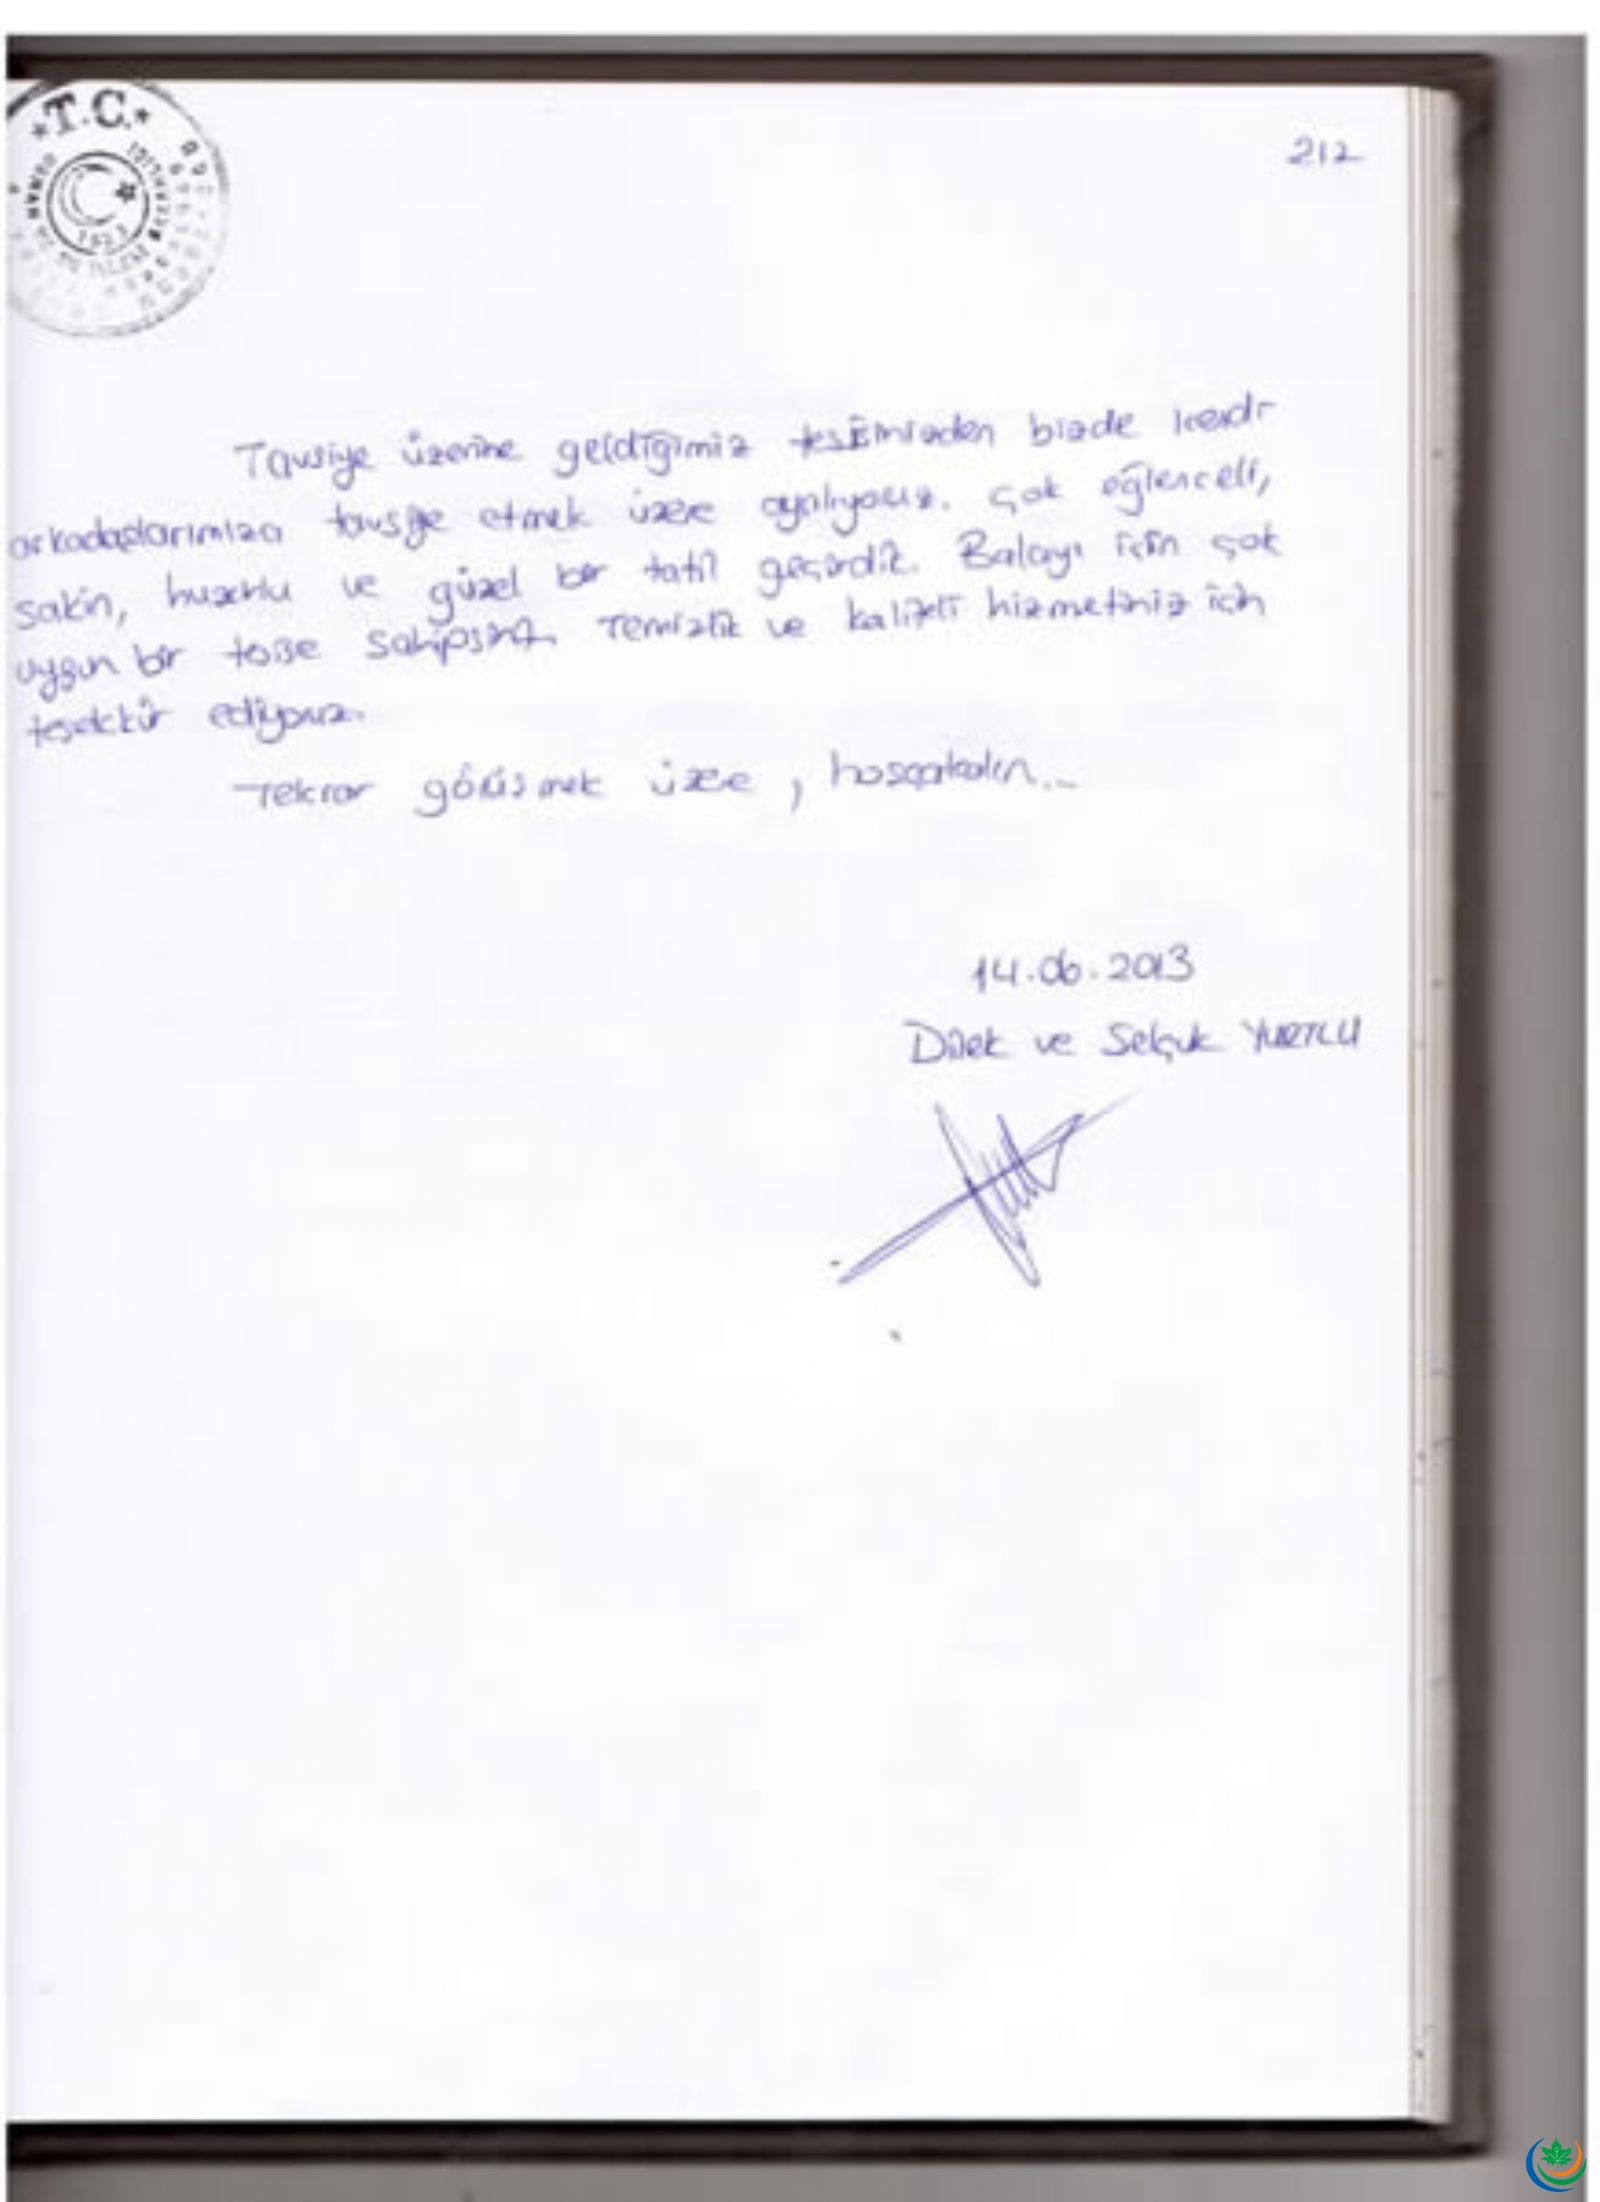 T.C.
1923
212
Tavsiye üzerine geldiğimiz tesisinizden bizde kendi
arkadaşlarımıza tavsiye etmek üzere ayrılıyoruz. Çok eğlenceli,
sakin, huzurlu ve güzel bir tatil geçirdik. Balayı için çok
uygun bir tesise sahipsiniz. Temizlik ve kaliteli hizmetiniz için
teşekkür ediyoruz.
Tekrar görüşmek üzere, hoşçakalın...
14.06.2013
Dilek ve Selçuk YURTLU